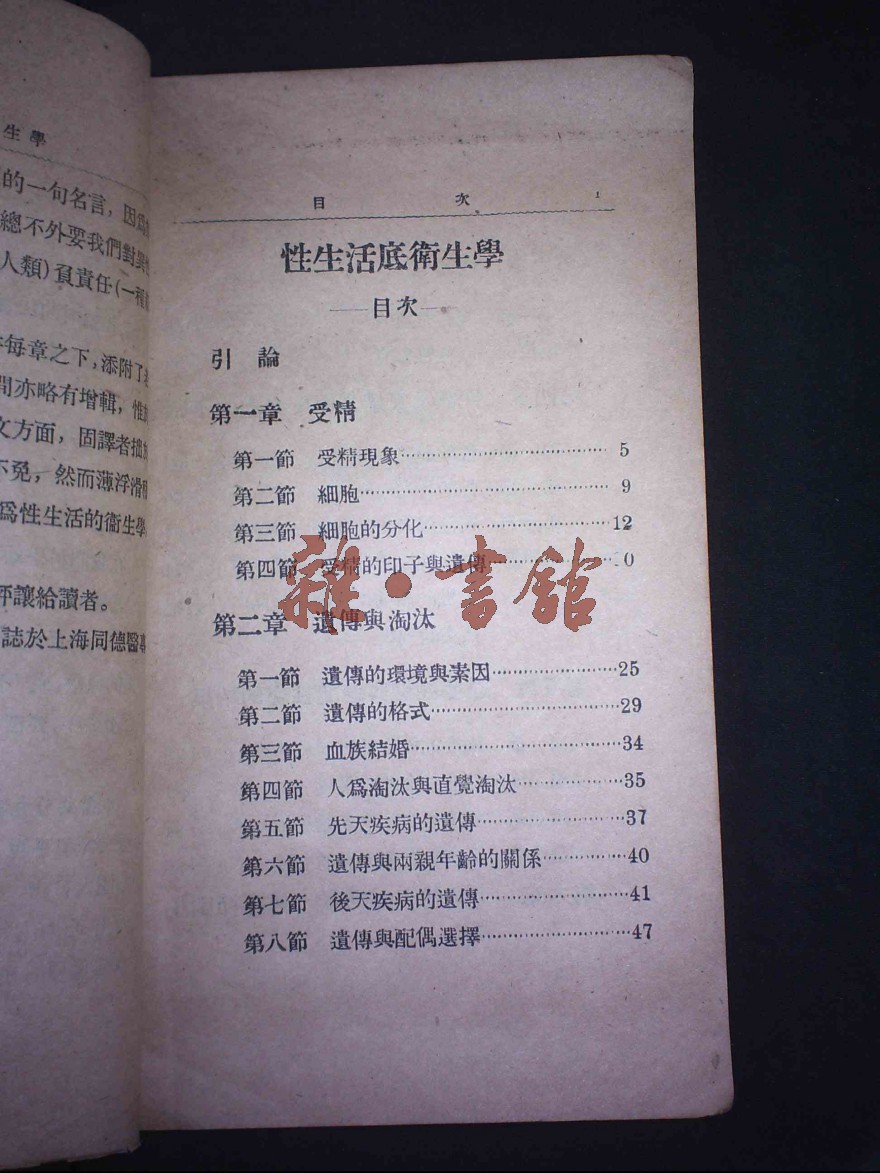 生學
的一句名言，因爲
總不外要我們對異
人類)負責任(一種
每章之下，添附了
間亦略有增輯，惟
文方面，固譯者拙
不免，然而薄浮滑
爲性生活的衞生學
評讓給讀者。
誌於上海同德醫專
目 次 1
性生活底衞生學
——目次——
引 論
第一章 受精
第一節 受精現象 5
第二節 細胞 9
第三節 細胞的分化 12
第四節 受精的印子與遺傳 0
雜·書館
第二章 遺傳與淘汰
第一節 遺傳的環境與素因 25
第二節 遺傳的格式 29
第三節 血族結婚 34
第四節 人爲淘汰與直覺淘汰 35
第五節 先天疾病的遺傳 37
第六節 遺傳與兩親年齡的關係 40
第七節 後天疾病的遺傳 41
第八節 遺傳與配偶選擇 47